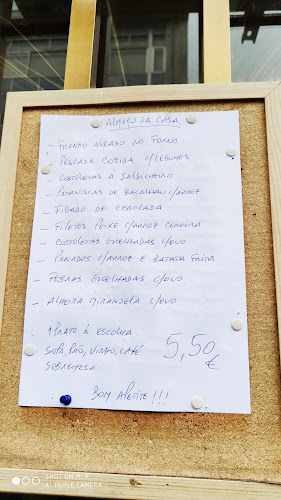 ALMOÇO DA CASA
- FRANGO ASSADO NO FORNO
- PESCADA COZIDA C/LEGUMES
- COSTOLETAS Á SALSICHEIRO
- PATANISCAS DE BACALHAU C/ARROZ
- FIGADO DE CEBOLADA
- FILETES PEIXE C/ARROZ CENOURA
- COSTOLETAS GRELHADAS C/OVO
- PANADOS C/ARROZ E BATATA FRITA
- FEBRAS GRELHADAS C/OVO
- ALHEIRA MIRANDELA C/OVO
1 PRATO Á ESCOLHA
SOPA, PÃO, VINHO, CAFÉ
SOBREMESA
5,50 €
BOM APETITE!!!
SHOT ON MI 9
AI TRIPLE CAMERA